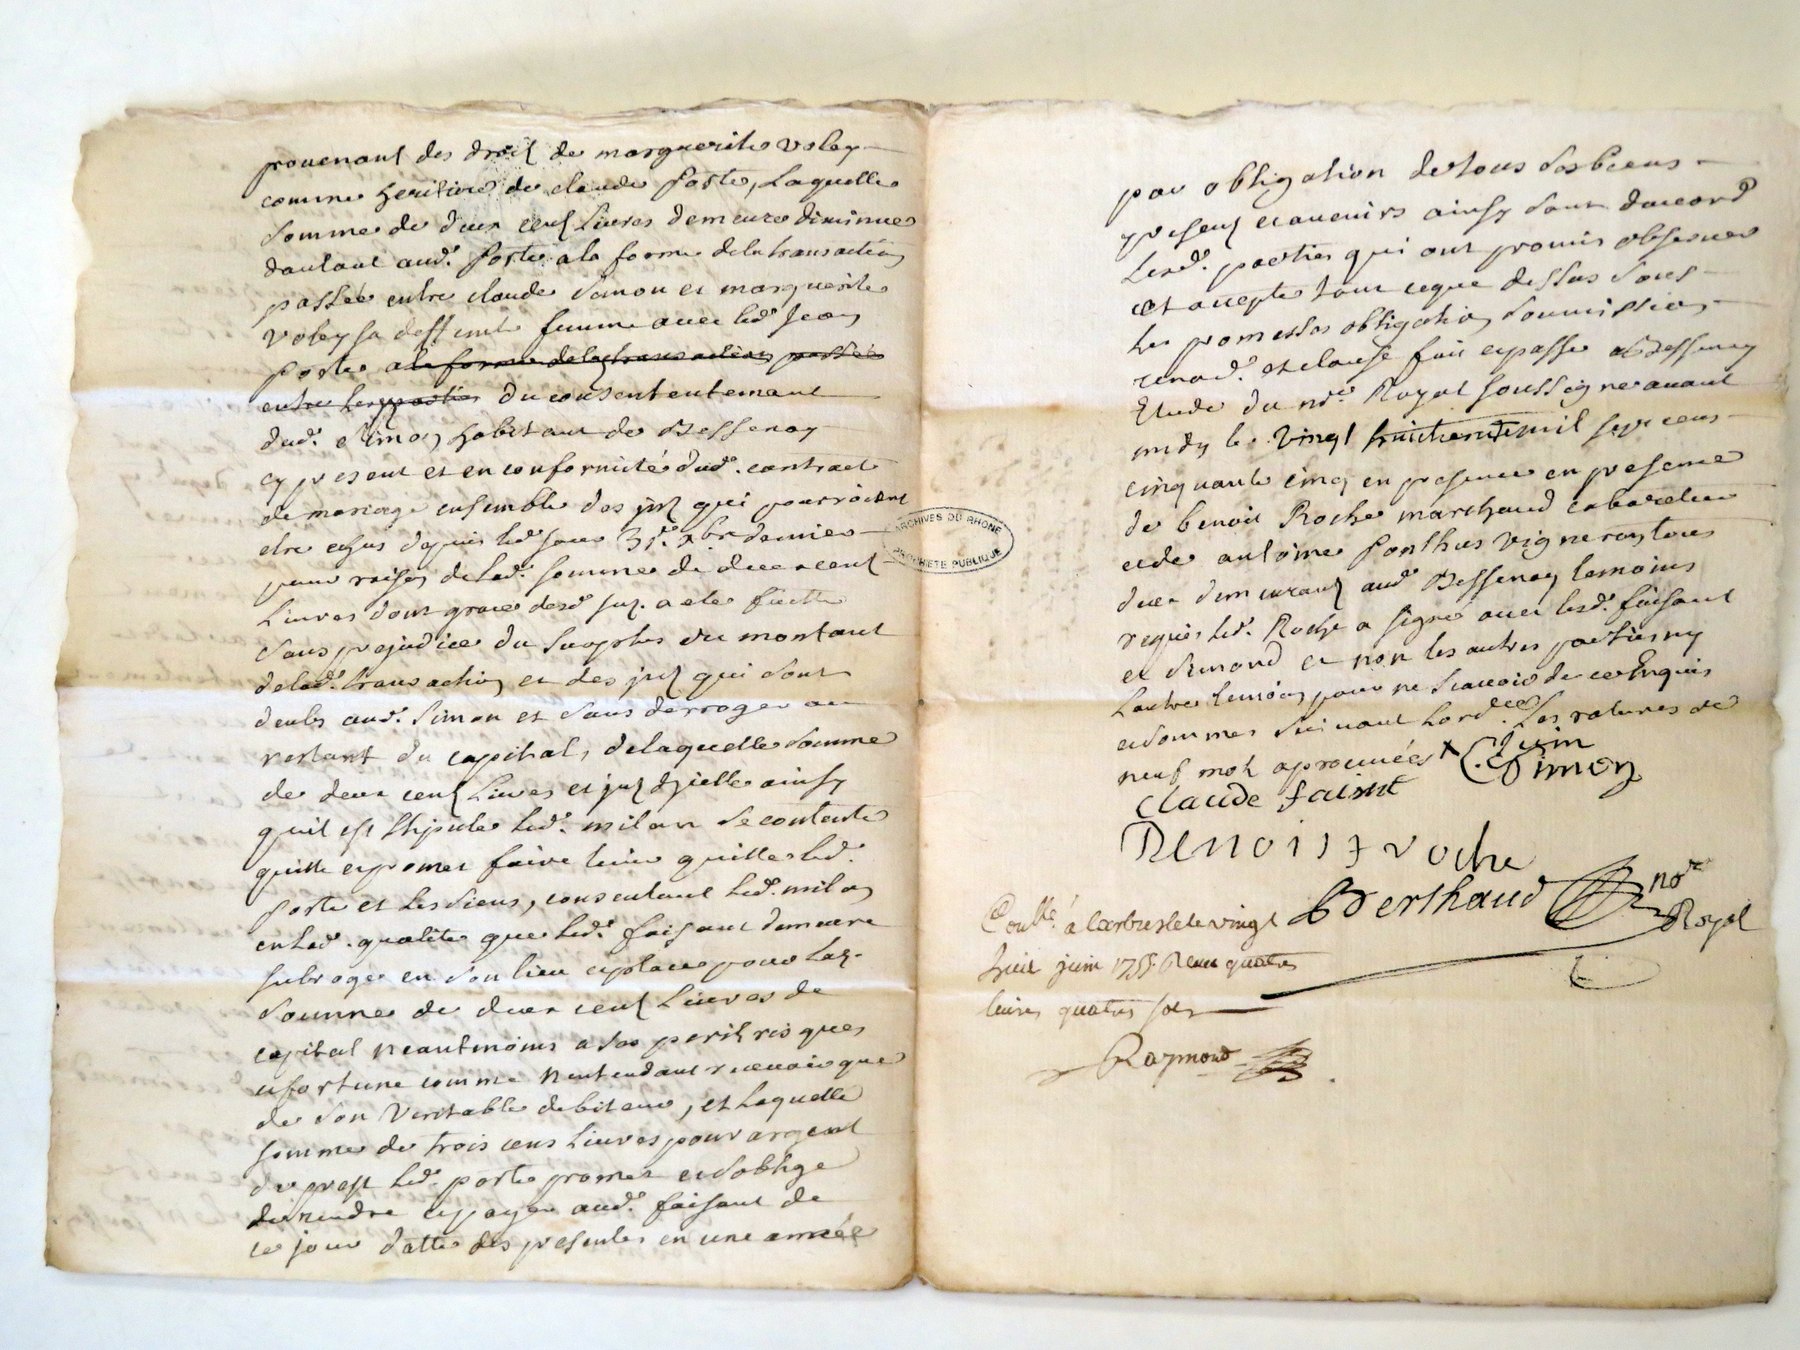 prouenant des droit de marguerite voley
comme heritiere de claude porte, Laquelle
somme de deux cent Liures demeure diminuee
dautant aud.t porte a la forme de la transaction
passée entre claude simon et marguerite
voley sa deffunte femme auec led.t jean
porte a la forme de la transaction passée
entre les parties du consentement
dud.t simon habitant de Bessenay
cy present et en conformité dud.t contract
de mariage ensemble des jnt qui pourroient
etre echus depuis led.t jour 31.e xbre dernier
pour raison de lad.t somme de deux cent
Liures dont grace desd.t jnt. a ete faitte
sans prejudice du surplus du montant
delad.t transaction et des jnt qui sont
deubs aud.t simon et sans deroger au
restant du capital, de laquelle somme
de deux cent Liures et jnt dicelle ainsy
quil est stipulé led.t milan se contente
quitte et promet faire tenir quitte led.t
porte et les siens, consentant led.t milan
en lad.t qualité que led.t faisant demeure
subrogé en son lieu et place pour lad.
somme de deux cent Liures de
capital neantmoins a ses peril risques
et fortune comme nentendant receuoir que
de son veritable debiteur, et Laquelle
somme de trois cens Liures pour argent
de prest led.t porte promet et soblige
de rendre et payer aud.t faisant de
ce jour datte des presentes en une année
par obligation de tous ses biens
presents et auenirs ainsy sont daccord
Lesd.t parties qui ont promis obseruer
et accepté tout ceque dessus sous
les promesses obligation soumission
renod.t et clause fait et passé a Bessenay
Etude du no.re Royal soussigné auant
midy le vingt huitieme mil sept cens
cinquante cinq en presence en presence
de benoit Roche marchand cabaretier
et de antoine Ponthus vigneron tous
deux demeurants aud.t Bessenay temoins
requis led.t Roche a signé auec lesd.t faisant
et simond et non les autres parties ny
Lautre temoin pour ne scauoir de ce Enquis
et sommés suiuant Lord.ce Les ratures de
neuf mots aprouuées x juin
C. Simon
claude faisint
Benoist roche
Berthaud no.re
Royal
Conllé à Larbresle le vingt
huit juin 1755. Recu quatre
liures quatre sols
Raymond
ARCHIVES DU RHONE
PROPRIETE PUBLIQUE